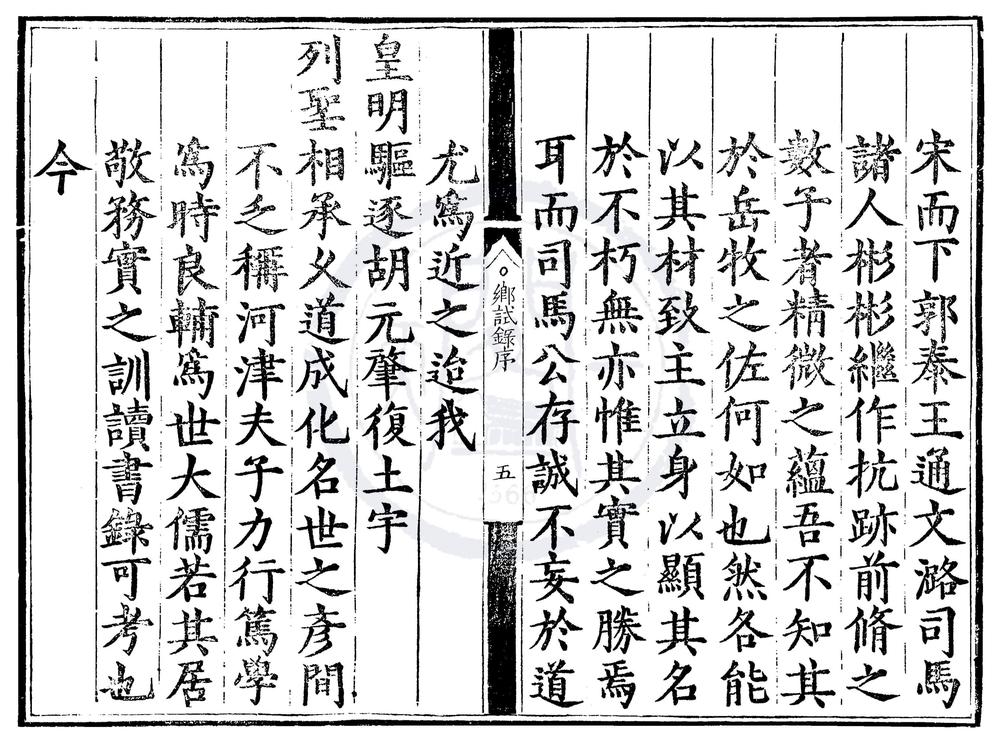 宋而下郭泰王通文潞司馬
諸人彬彬繼作抗跡前脩之
數子者精微之蘊吾不知其
於岳牧之佐何如也然各能
以其材致主立身以顯其名
於不朽無亦惟其實之勝焉
耳而司馬公存誠不妄於道
鄉試錄序
五
尤爲近之迨我
皇明驅逐胡元肇復土宇
列聖相承乂道成化名世之彥間
不乏稱河津夫子力行篤學
爲時良輔爲世大儒若其居
敬務實之訓讀書錄可考也
今